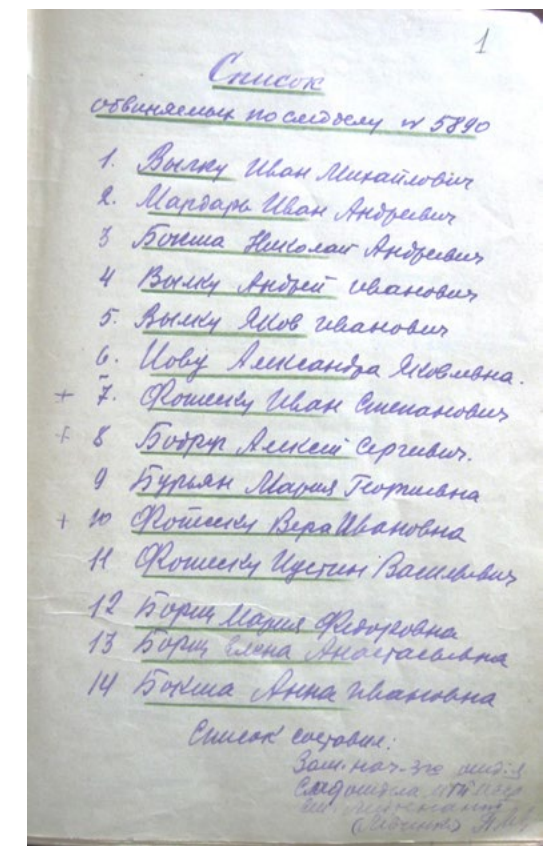 1
Список
обвиняемых по следделу № 5890
1. Вылку Иван Михайлович
2. Мардарь Иван Андреевич
3 Бокша Николай Андреевич
4 Вылку Андрей Иванович
5. Вылку Яков Иванович
6. Александра Яковлевна.
+ 7. Иван Степанович
+ 8 Бодруг Алексей Сергеевич.
9 Бурьян Мария Георгиевна
+ 10 Вера Ивановна
11 Василевич
12 Борщ Мария Федоровна
13 Борщ Елена Анастасьевна
14 Бокша Анна Ивановна
Список составил:
Зам. нач. 3го